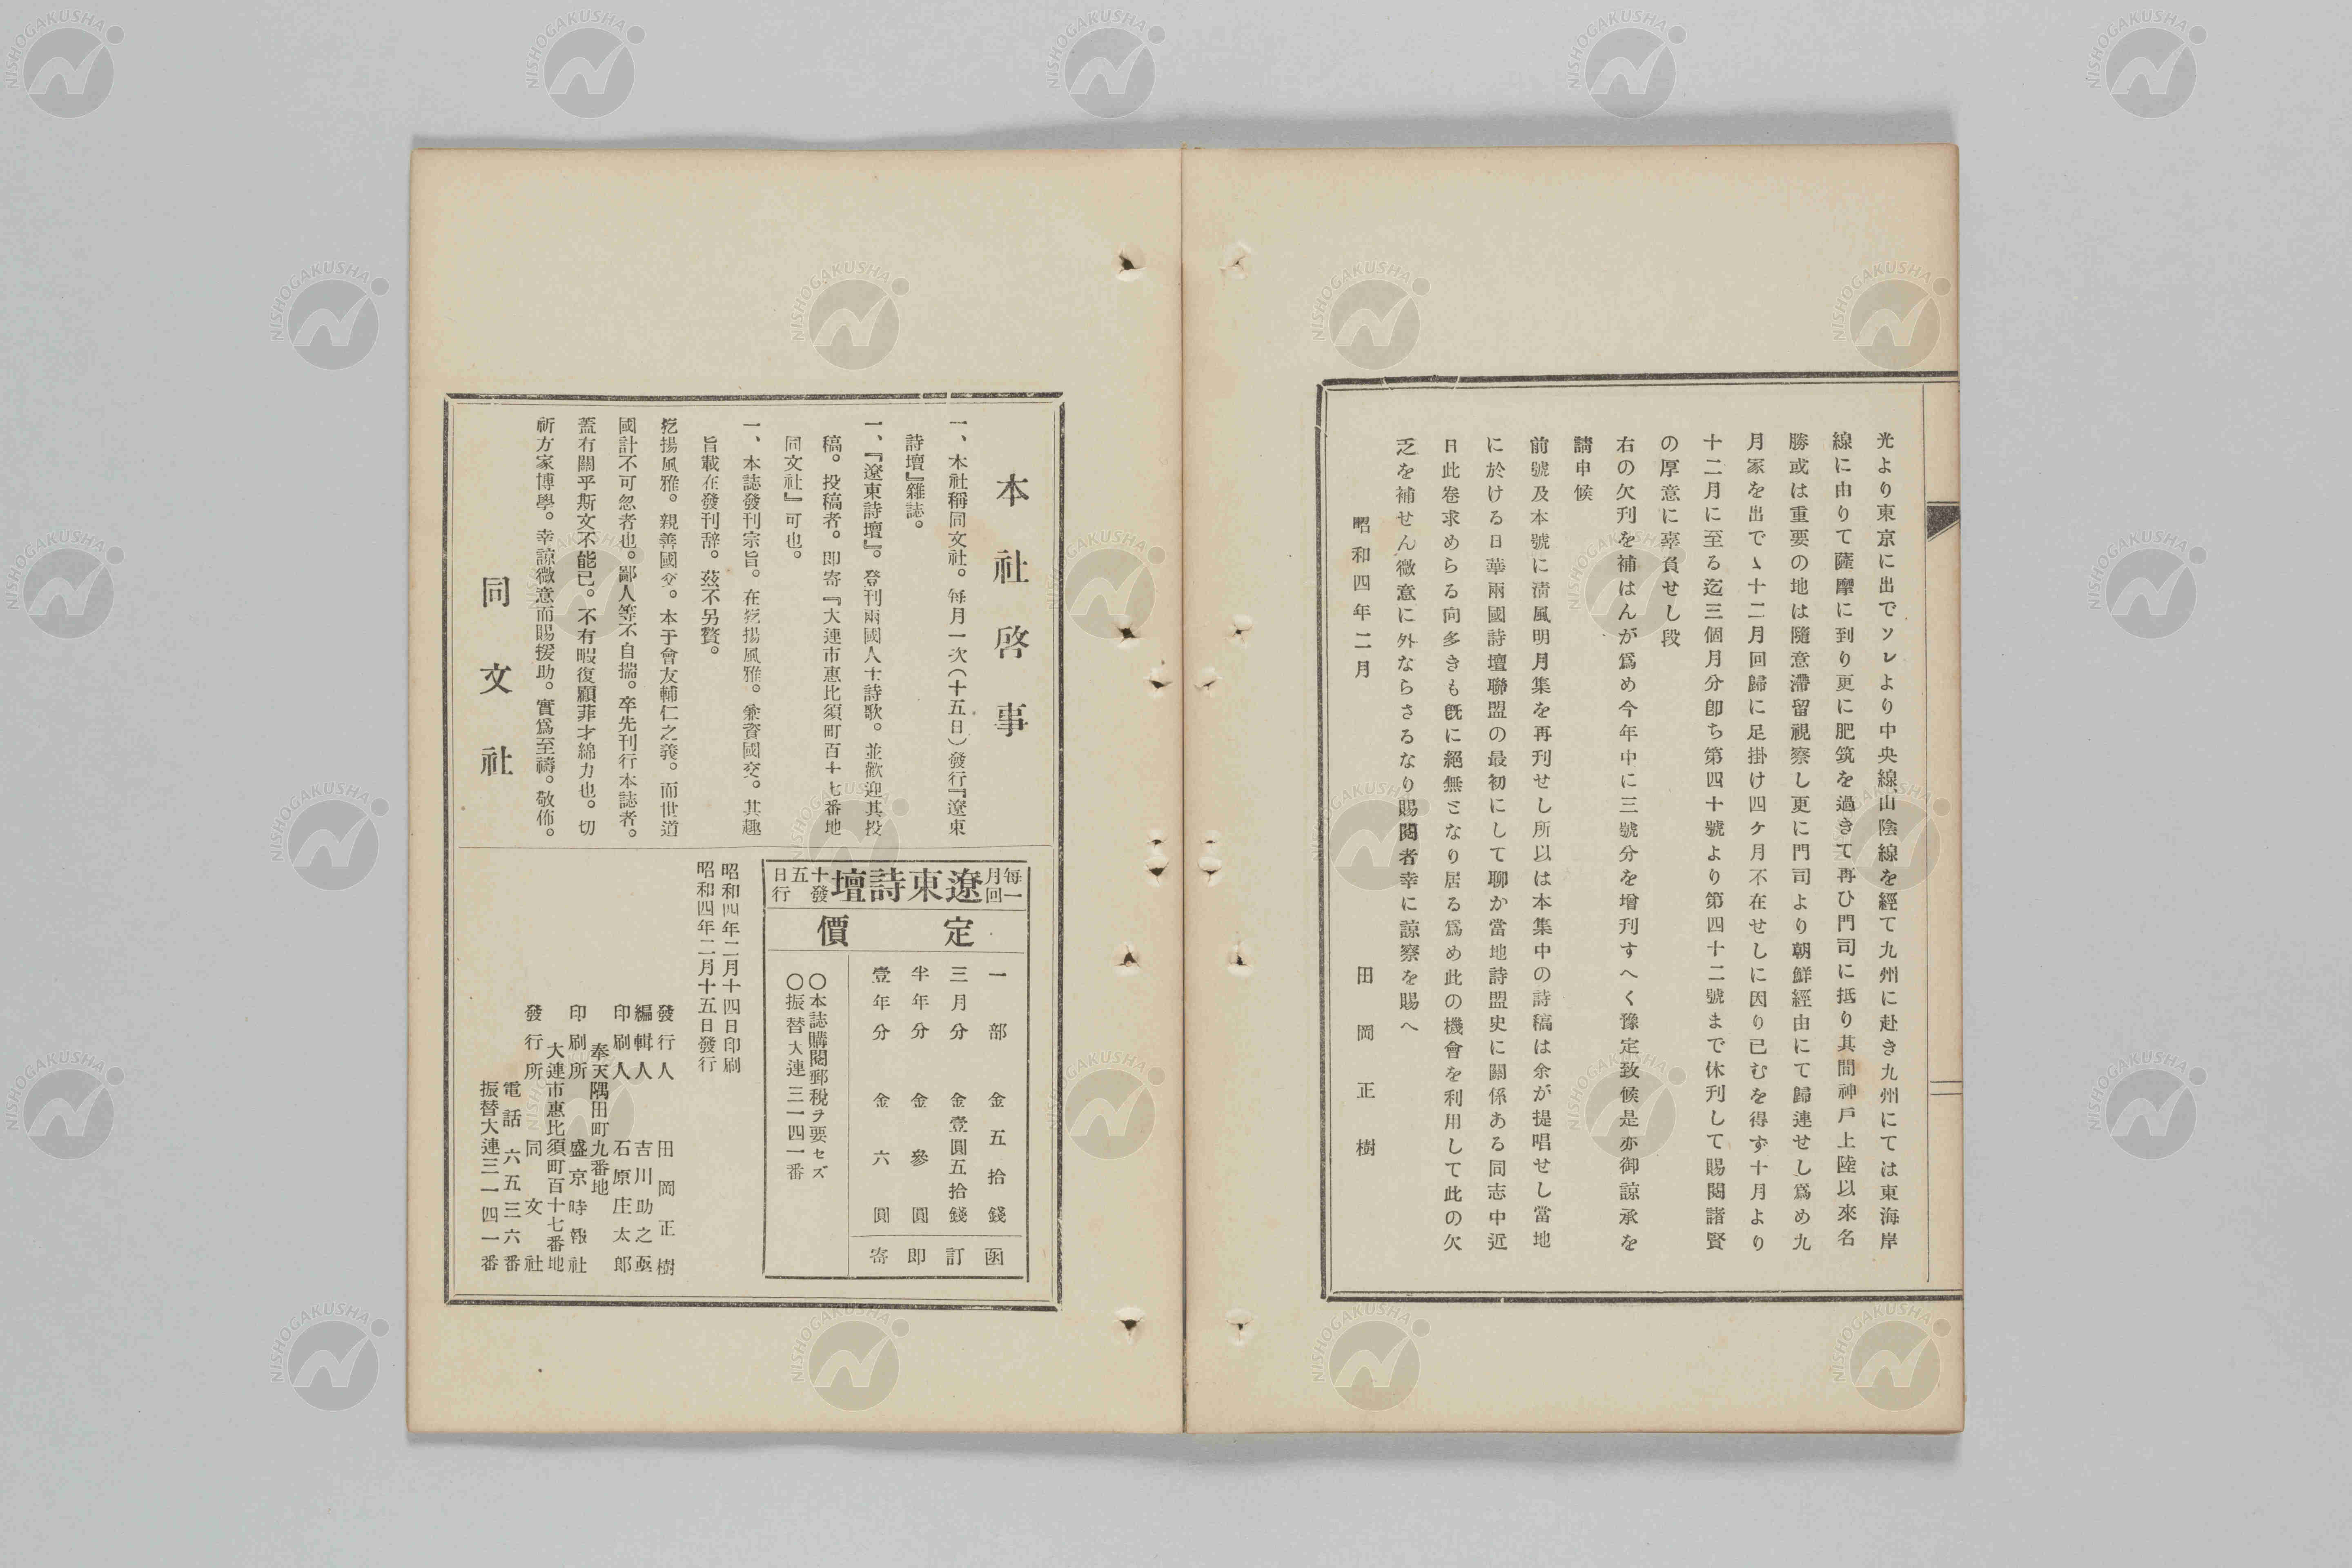 光より東京に出でソレより中央線、山陰線を經て九州に赴き九州にては東海岸
線に由りて薩摩に到り更に肥筑を過きて再ひ門司に抵り其間神戸上陸以來名
勝或は重要の地は隨意滯留視察し更に門司より朝鮮經由にて歸連せし爲め九
月家を出でゝ十二月回歸に足掛け四ケ月不在せしに因り已むを得ず十月より
十二月に至る迄三個月分卽ち第四十號より第四十二號まで休刊して賜閱諸賢
の厚意に辜負せし段
右の欠刊を補はんが爲め今年中に三號分を增刊すへく豫定致候是亦御諒承を
請申候
前號及本號に淸風明月集を再刊せし所以は本集中の詩稿は余が提唱せし當地
に於ける日華兩國詩壇聯盟の最初にして聊か當地詩盟史に關係ある同志中近
日此卷求めらる向多きも旣に絕無となり居る爲め此の機會を利用して此の欠
乏を補せん微意に外ならさるなり賜閱者幸に諒察を賜へ
昭和四年二月
田岡正樹
本社啓事
一、本社稱同文社。每月一次(十五日)發行『遼東
詩壇』雜誌。
一、『遼東詩壇』。登刊兩國人士詩歌。並歡迎其投
稿。投稿者。即寄『大連市惠比須町百十七番地
同文社』可也。
一、本誌發刊宗旨。在挖揚風雅。兼資國交。其趣
旨載在發刊辞。茲不另贅。
挖揚風雅。親善國交。本于會友輔仁之義。而世道
國計不可忽者也。鄙人等不自揣。卒先刊行本誌者。
蓋有關乎斯文不能已。不有暇復顧菲才綿力也。切
祈方家博學。幸諒微意而賜援助。實爲至禱。敬佈。
同文社
每月一回
遼東詩壇
十五日發行
定價
一部 金五拾錢
三月分 金壹圓五拾錢
半年分 金參圓
壹年分 金六圓
函訂即寄
〇本誌購閱郵稅ヲ要セズ
〇振替大連三一四一番
昭和四年二月十四日印刷
昭和四年二月十五日發行
發行人 田岡正樹
編輯人 吉川助之亟
印刷人 石原庄太郎
奉天隅田町九番地
印刷所 盛京時報社
大連市惠比須町百十七番地
發行所 同文社
電話六五三六番
振替大連三一四一番
NISHOGAKUSHA